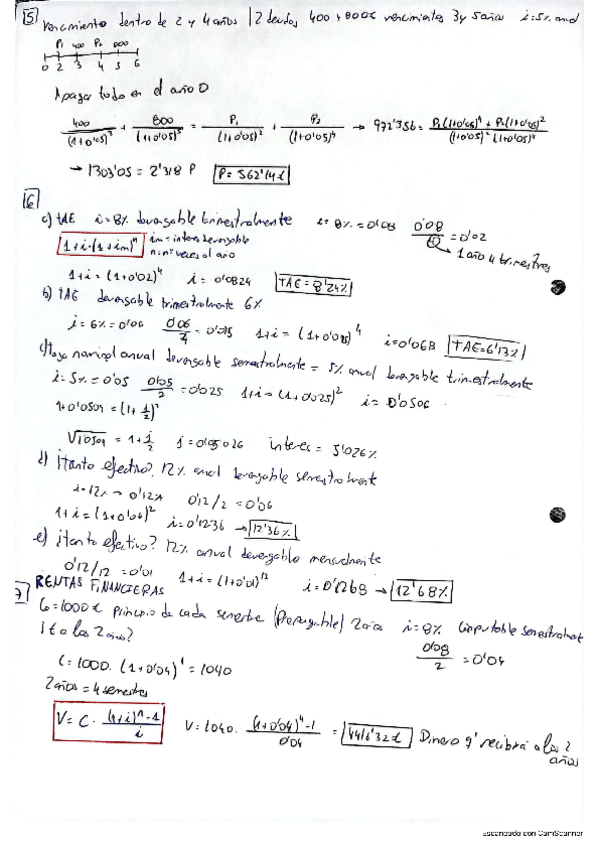 5 Vencimiento dentro de 2 y 4 años | 2 deudas 400 y 800€ vencimientos 3 y 5 años i=5% anual
P₁ 400 P₂ 800
0 2 3 4 5 6
A pagar todo en el año 0
400/(1+0'05)³ + 800/(1+0'05)⁵ = P₁/(1+0'05)² + P₂/(1+0'05)⁴ → 972'356 = P₁(1+0'05)⁴ + P₂(1+0'05)²/(1+0'05)²(1+0'05)⁴
→ 1303'05 = 2'318 P P = 562'14€
6
a) TAE i=8% devengable trimestralmente i=8%=0'08 0'08/4 = 0'02
1+i=(1+im)ⁿ im=interes devengable
n=nº veces al año
1 año 4 trimestres
1+i=(1+0'02)⁴ i=0'0824 TAE=8'24%
b) TAE devengable trimestralmente 6%
i=6%=0'06 0'06/4=0'015 1+i=(1+0'015)⁴ i=0'0613 TAE=6'13%
c) tasa nominal anual devengable semestralmente = 5% anual devengable trimestralmente
i=5%=0'05 0'05/2=0'025 1+i=(1+0'025)² i=0'0506
1+0'0509=(1+i/2)²
√1'0509=1+i/2 j=0'05026 interes=5'026%
d) ¿tanto efectivo? 12% anual devengable semestralmente
i=12% → 0'12 0'12/2=0'06
1+i=(1+0'06)² i=0'1236 → 12'36%
e) ¿tanto efectivo? 12% anual devengable mensualmente
0'12/12=0'01 1+i=(1+0'01)¹² i=0'1268 → 12'68%
7 RENTAS FINANCIERAS
C₀=1000€ principio de cada semestre (Prepagable) 2 años i=8% computable semestralmente
¿t a los 2 años? 0'08/2=0'04
C=1000·(1+0'04)¹=1040
2 años=4 semestres
V=C·(1+i)ⁿ-1/i V=1040·(1+0'04)⁴-1/0'04 = 4416'32€ Dinero q' recibirá a los 2 años
Escaneado con CamScanner